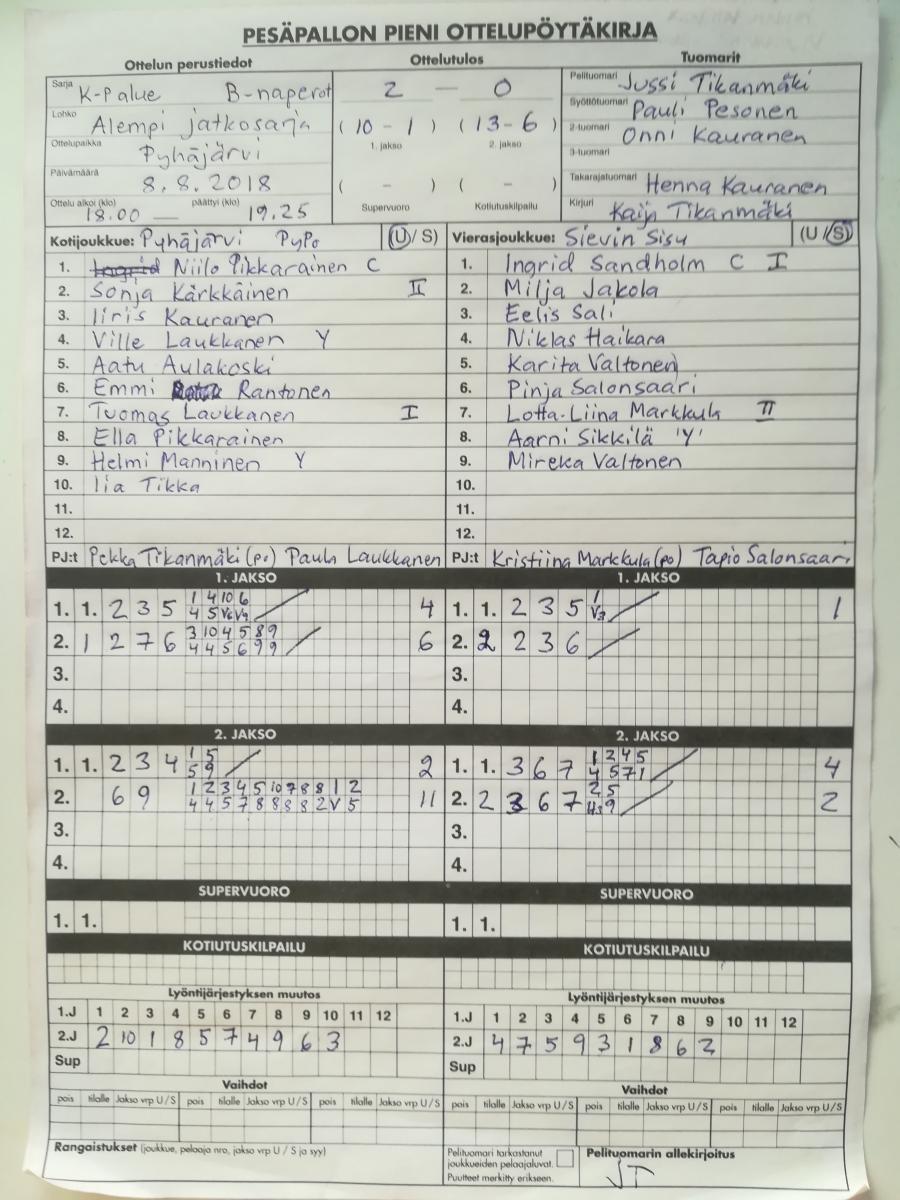 PESÄPALLON PIENI OTTELUPÖYTÄKIRJA
Ottelun perustiedot
Sarja K-Palue B-naperot
Lohko Alempi jatkosarja
Ottelupaikka Pyhäjärvi
Päivämäärä 8.8.2018
Ottelu alkoi (klo) 18.00 — päättyi (klo) 19.25
Ottelutulos
2 — 0
( 10 - 1 ) ( 13 - 6 )
1. jakso 2. jakso
( - ) ( - )
Supervuoro Kotiutuskilpailu
Tuomarit
Pelituomari Jussi Tikanmäki
Syöttötuomari Pauli Pesonen
2-tuomari Onni Kauranen
3-tuomari
Takarajatuomari Henna Kauranen
Kirjuri Kaija Tikanmäki
Kotijoukkue: Pyhäjärvi PyPo (U / S)
1. Niilo Pikkarainen C
2. Sonja Kärkkäinen II
3. Iiris Kauranen
4. Ville Laukkanen Y
5. Aatu Aulakoski
6. Emmi Rantonen
7. Tuomas Laukkanen I
8. Ella Pikkarainen
9. Helmi Manninen Y
10. Iia Tikka
11.
12.
PJ:t Pekka Tikanmäki (po) Paula Laukkanen
Vierasjoukkue: Sievin Sisu (U / S)
1. Ingrid Sandholm C I
2. Milja Jakola
3. Eelis Sali
4. Niklas Haikara
5. Karita Valtonen
6. Pinja Salonsaari
7. Lotta-Liina Markkula II
8. Aarni Sikkilä 'Y'
9. Mireka Valtonen
10.
11.
12.
PJ:t Kristiina Markkula (po) Tapio Salonsaari
1. JAKSO
1. 1. 2 3 5 1 4 10 6 4
4 5 V6 V9
2. 1 2 7 6 3 10 4 5 8 9 6
4 4 5 6 9 9
3.
4.
1. JAKSO
1. 1. 2 3 5 1 1
V3
2. 2 2 3 6
3.
4.
2. JAKSO
1. 1. 2 3 4 1 5 2
5 9
2. 6 9 1 2 3 4 5 10 7 8 8 1 2 11
4 4 5 7 8 8 8 8 2 V 5
3.
4.
2. JAKSO
1. 1. 3 6 7 1 2 4 5 4
4 5 7 1
2. 2 3 6 7 2 5 2
9
3.
4.
SUPERVUORO
1. 1.
SUPERVUORO
1. 1.
KOTIUTUSKILPAILU
KOTIUTUSKILPAILU
Lyöntijärjestyksen muutos
1.J 1 2 3 4 5 6 7 8 9 10 11 12
2.J 2 10 1 8 5 7 4 9 6 3
Sup
Lyöntijärjestyksen muutos
1.J 1 2 3 4 5 6 7 8 9 10 11 12
2.J 4 7 5 9 3 1 8 6 2
Sup
Vaihdot
pois tilalle Jakso vrp U/S pois tilalle Jakso vrp U/S pois tilalle
Vaihdot
pois tilalle Jakso vrp U/S pois tilalle Jakso vrp U/S pois tilalle Jakso vrp U/S
Rangaistukset (joukkue, pelaaja nro, jakso vrp U / S ja syy)
Pelituomari tarkastanut
joukkueiden pelaajaluvat.
Puutteet merkitty erikseen.
Pelituomarin allekirjoitus
JT